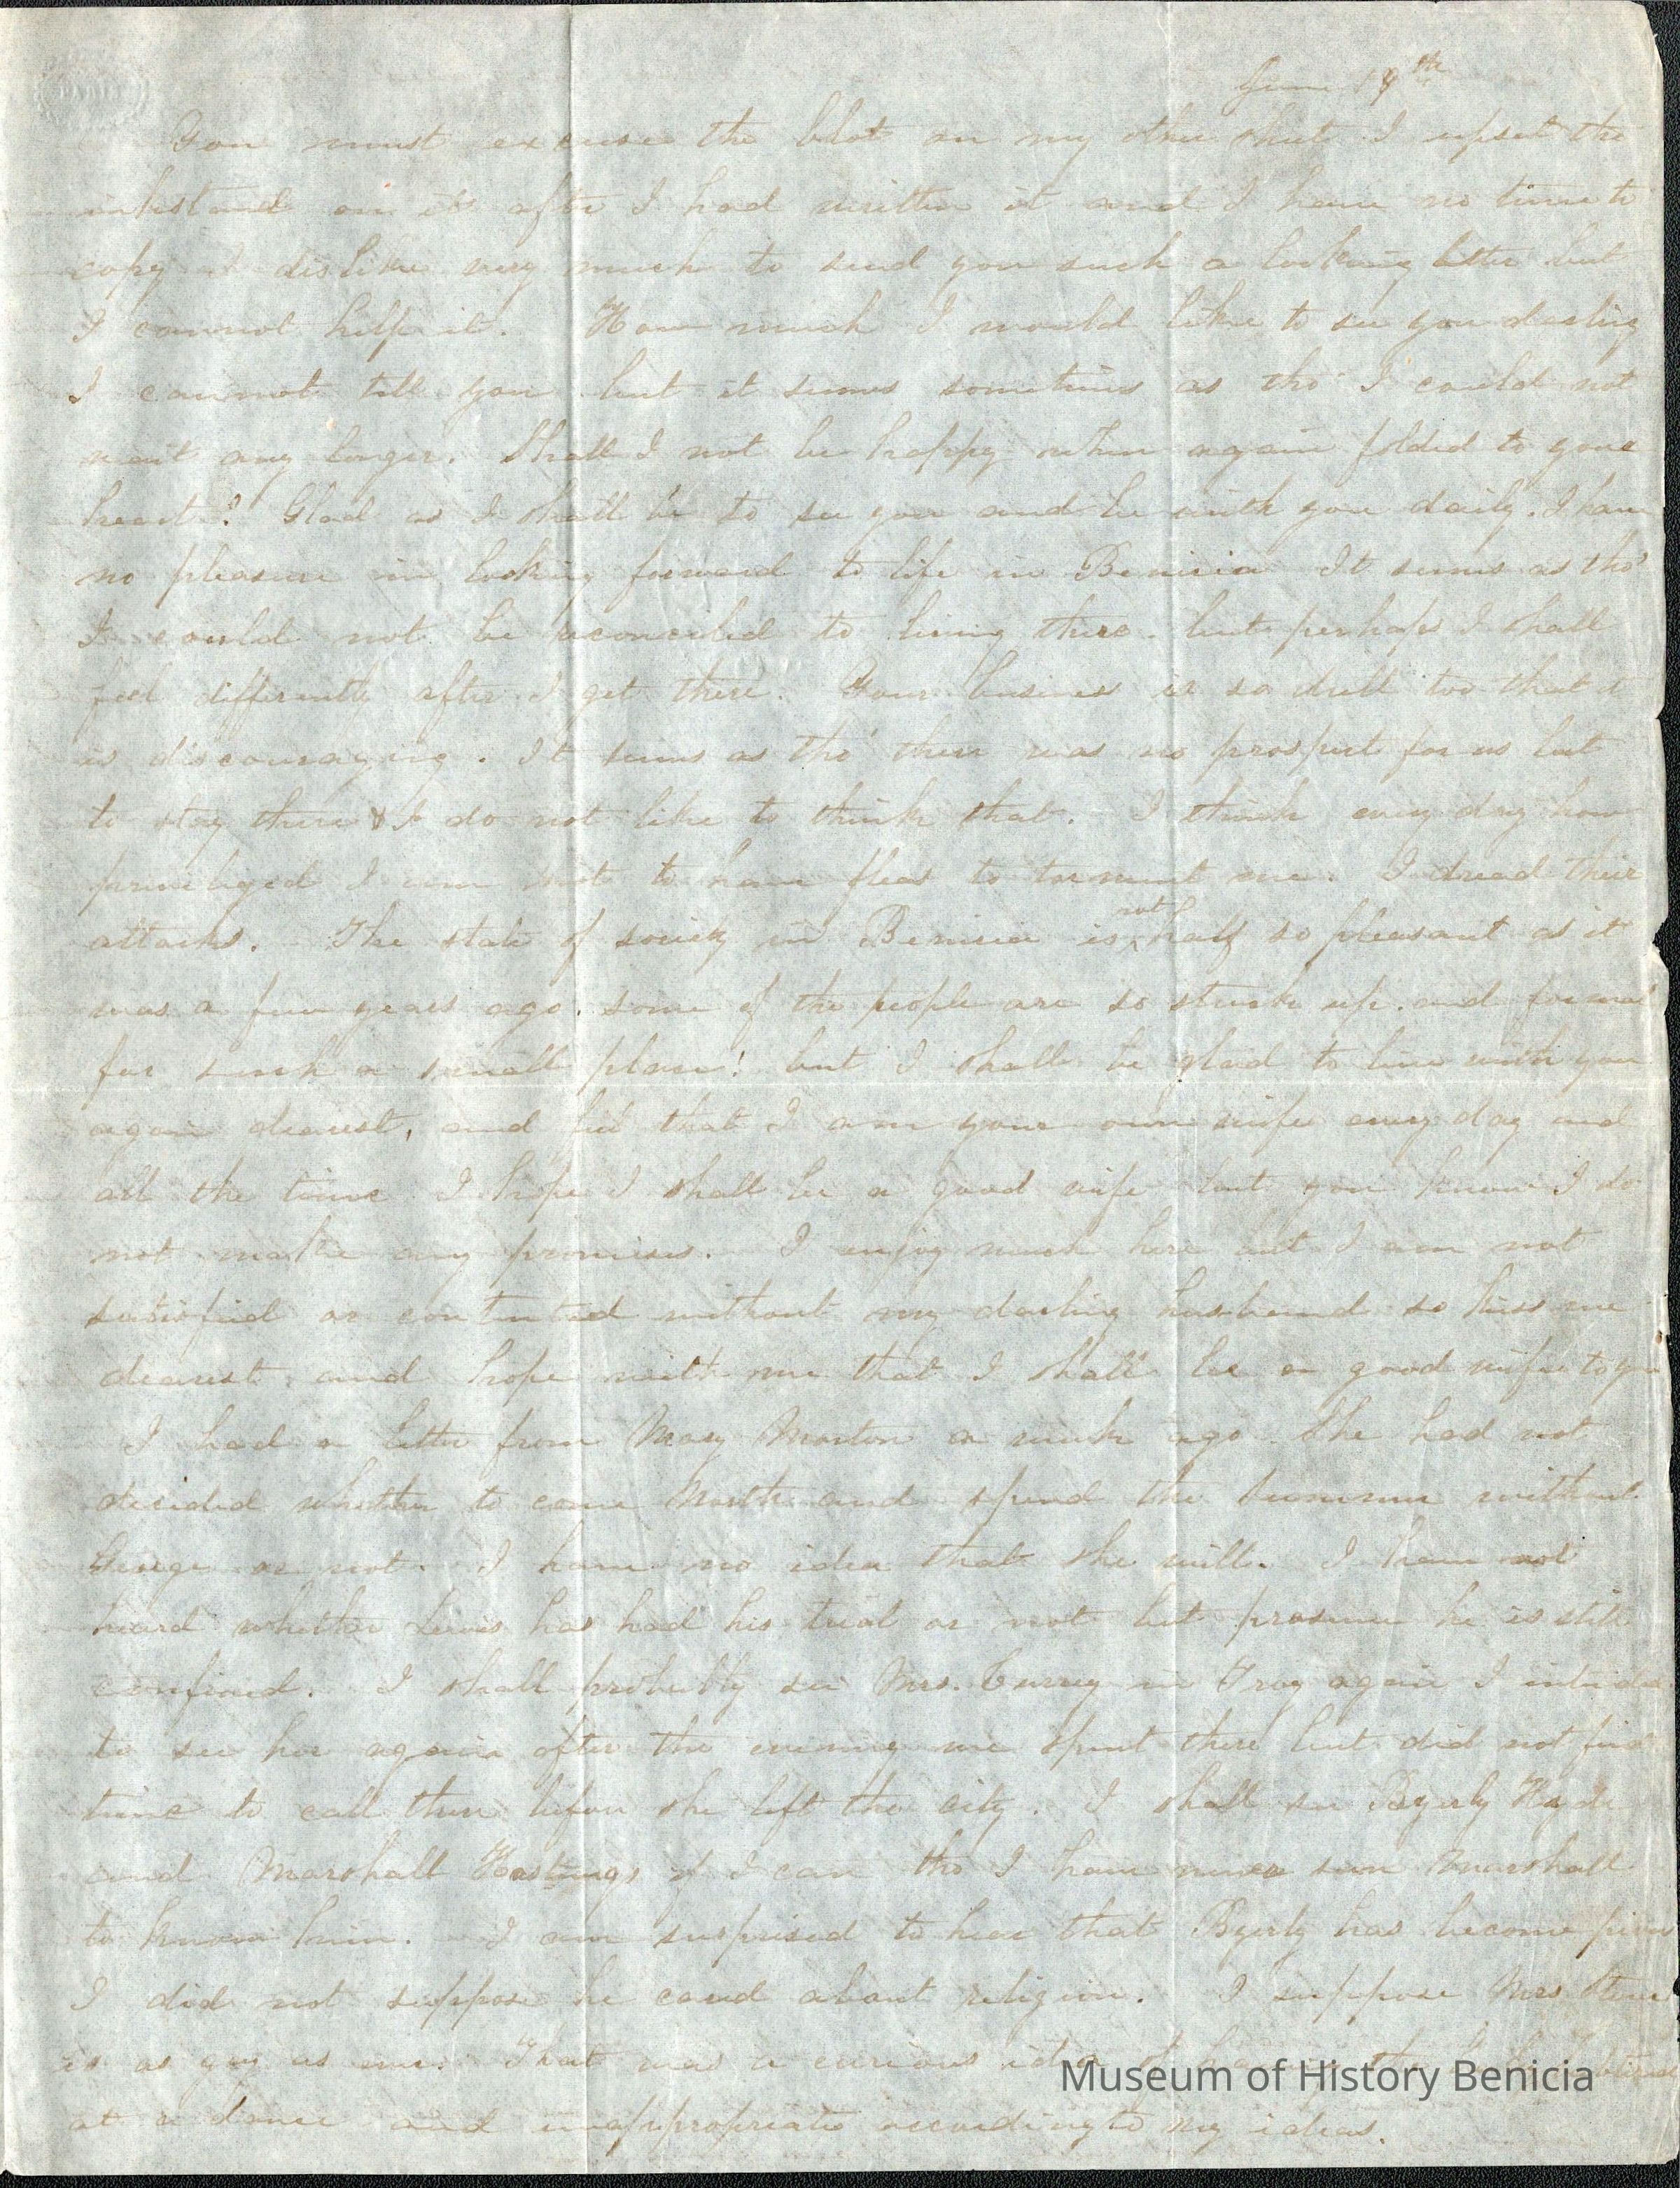 PARIS
June 19th
You must excuse the blot on my other sheet I upset the
inkstand on it after I had written it and I have no time to
copy I dislike very much to send you such a looking letter but
I cannot help it. How much I would like to see you darling
I cannot tell you but it seems sometimes as tho' I could not
wait any longer. Shall I not be happy when again folded to your
heart? Glad as I shall be to see you and be with you daily. I have
no pleasure in looking forward to life in Benicia It seems as tho'
I could not be reconciled to living there. but perhaps I shall
feel differently after I get there. Your business is so dull too that it
is discouraging. It seems as tho' there was no prospect for us but
to stay there & I do not like to think that. I think every day how
priveliged I am not to have fleas to torment me. I dread their
attacks. The state of society in Benicia is not half so pleasant as it
was a few years ago. some of the people are so stuck up. and formal
for such a small place! but I shall be glad to live with you
again dearest, and feel that I am your own wife every day and
all the time I hope I shall be a good wife but you know I do
not make any promises. I enjoy much here but I am not
satisfied or contented without my darling husband so kiss me
dearest and hope with me that I shall be a good wife to you
I had a letter from Mary Morton a week ago. She had not
decided whether to come North and spend the summer without
George or not. I have no idea that she will. I have not
heard whether Lewis has had his trial or not but presume he is still
confined. I shall probably see Mrs. Currey in Troy again I intended
to see her again after the evening we spent there but did not find
time to call there before she left the city. I shall see Byerly Hyde
and Marshall Hastings if I can tho I have never seen Marshall
to know him. I am surprised to hear that Byerly has become pious
I did not suppose he cared about religion. I suppose Mrs
is as gay as ever. That was a curious idea
at a dance and inappropriate according to my ideas.
Museum of History Benicia